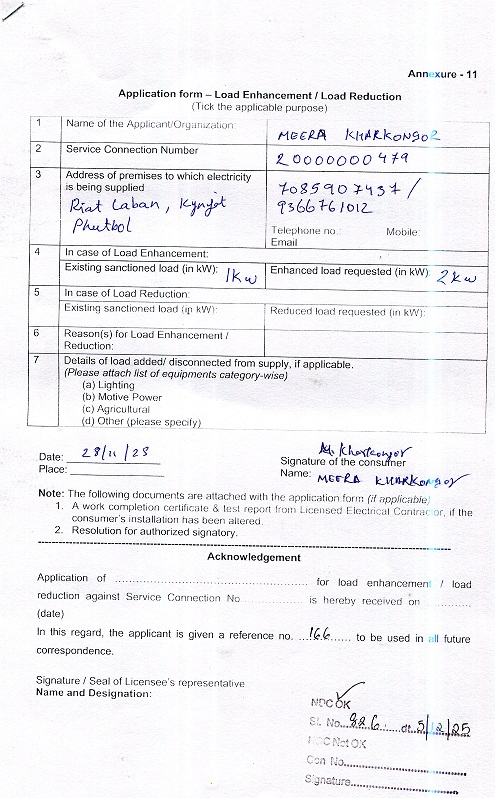 Annexure - 11
Application form – Load Enhancement / Load Reduction
(Tick the applicable purpose)
1 Name of the Applicant/Organization: MEERA KHARKONGOR
2 Service Connection Number 20000000479
3 Address of premises to which electricity is being supplied
Riat Laban, Kynjot
Phutbol
7085907437 /
9366761012
Telephone no.: Mobile:
Email
4 In case of Load Enhancement:
Existing sanctioned load (in kW): 1Kw Enhanced load requested (in kW): 2Kw
5 In case of Load Reduction:
Existing sanctioned load (in kW): Reduced load requested (in kW):
6 Reason(s) for Load Enhancement /
Reduction:
7 Details of load added/ disconnected from supply, if applicable.
(Please attach list of equipments category-wise)
(a) Lighting
(b) Motive Power
(c) Agricultural
(d) Other (please specify)
Date: 28/11/25
Place:
M. Kharkongor
Signature of the consumer
Name: MEERA KHARKONGOR
Note: The following documents are attached with the application form (if applicable)
1. A work completion certificate & test report from Licensed Electrical Contractor, if the
consumer's installation has been altered.
2. Resolution for authorized signatory.
Acknowledgement
Application of for load enhancement / load
reduction against Service Connection No is hereby received on
(date)
In this regard, the applicant is given a reference no. 166 to be used in all future
correspondence.
Signature / Seal of Licensee's representative
Name and Designation:
NDC OK
Sl. No. 826 dt. 5/12/25
NDC Not OK
Con No.
Signature